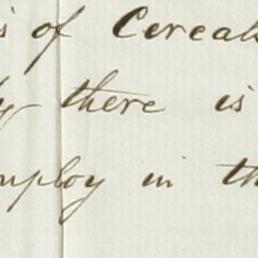 of Cereals
there is
employ in the